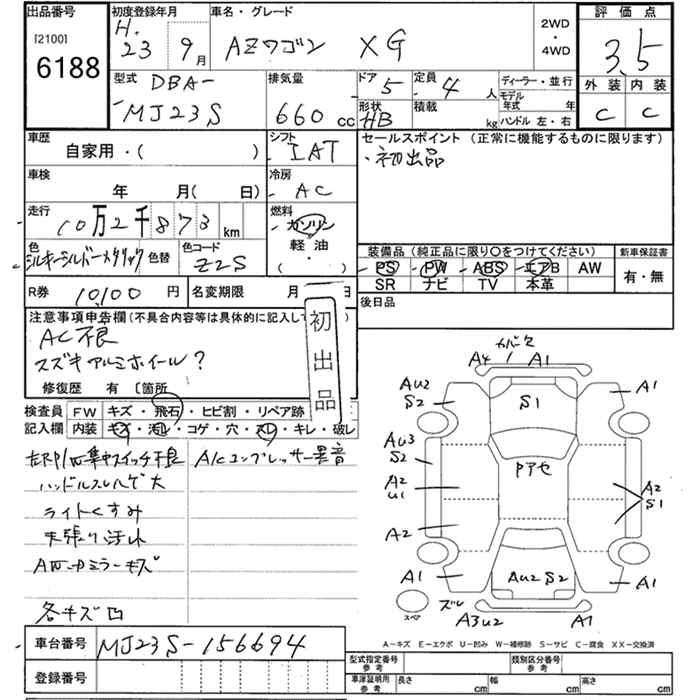 出品番号
[2100]
6188
初度登録年月
H.
23 9月
車名・グレード
AZワゴン XG
2WD
・
4WD
評価点
3.5
外装 内装
C C
型式 DBA-
MJ23S
排気量
660 cc
ドア 5
定員 4 人
形状 HB
積載 kg
ディーラー・並行
モデル年式 年
ハンドル 左・右
車歴
自家用・( )
シフト
IAT
セールスポイント (正常に機能するものに限ります)
・初出品
車検
年 月( 日)
冷房
AC
走行
10万2千873 km
燃料
ガソリン
軽油
・( )
色
シルキーシルバーメタリック 色替
色コード
Z2S
装備品 (純正品に限り○をつけてください)
PS PW ABS エアB AW
SR ナビ TV 本革
新車保証書
有・無
R券 10,100 円
名変期限 月 日
後日品
注意事項申告欄 (不具合内容等は具体的に記入し
AC不良
スズキアルミホイール?
修復歴 有 〔箇所
初出品
検査員記入欄
FW キズ・飛石・ヒビ割・リペア跡
内装 キズ・汚れ・コゲ・穴・スレ・キレ・破レ
集中スイッチ不良
A/Cコンプレッサー異音
ハンドルスレハゲ大
ライトくすみ
天張り汚れ
ミラーキズ
各キズ凹
車台番号 MJ23S-156694
登録番号
カバ欠
A4 A1
AU2
S2
S1
A1
AU3
S2
A2
U1
Pアせ
A2
S1
A2
A1
AU2 S2
A1
スペア
ズレ
A3U2
A1
A-キズ E-エクボ U-凹み W-補修跡 S-サビ C-腐食 XX-交換済
型式指定番号 参考
類別区分番号 参考
車庫証明用 参考
長さ cm
幅 cm
高さ cm